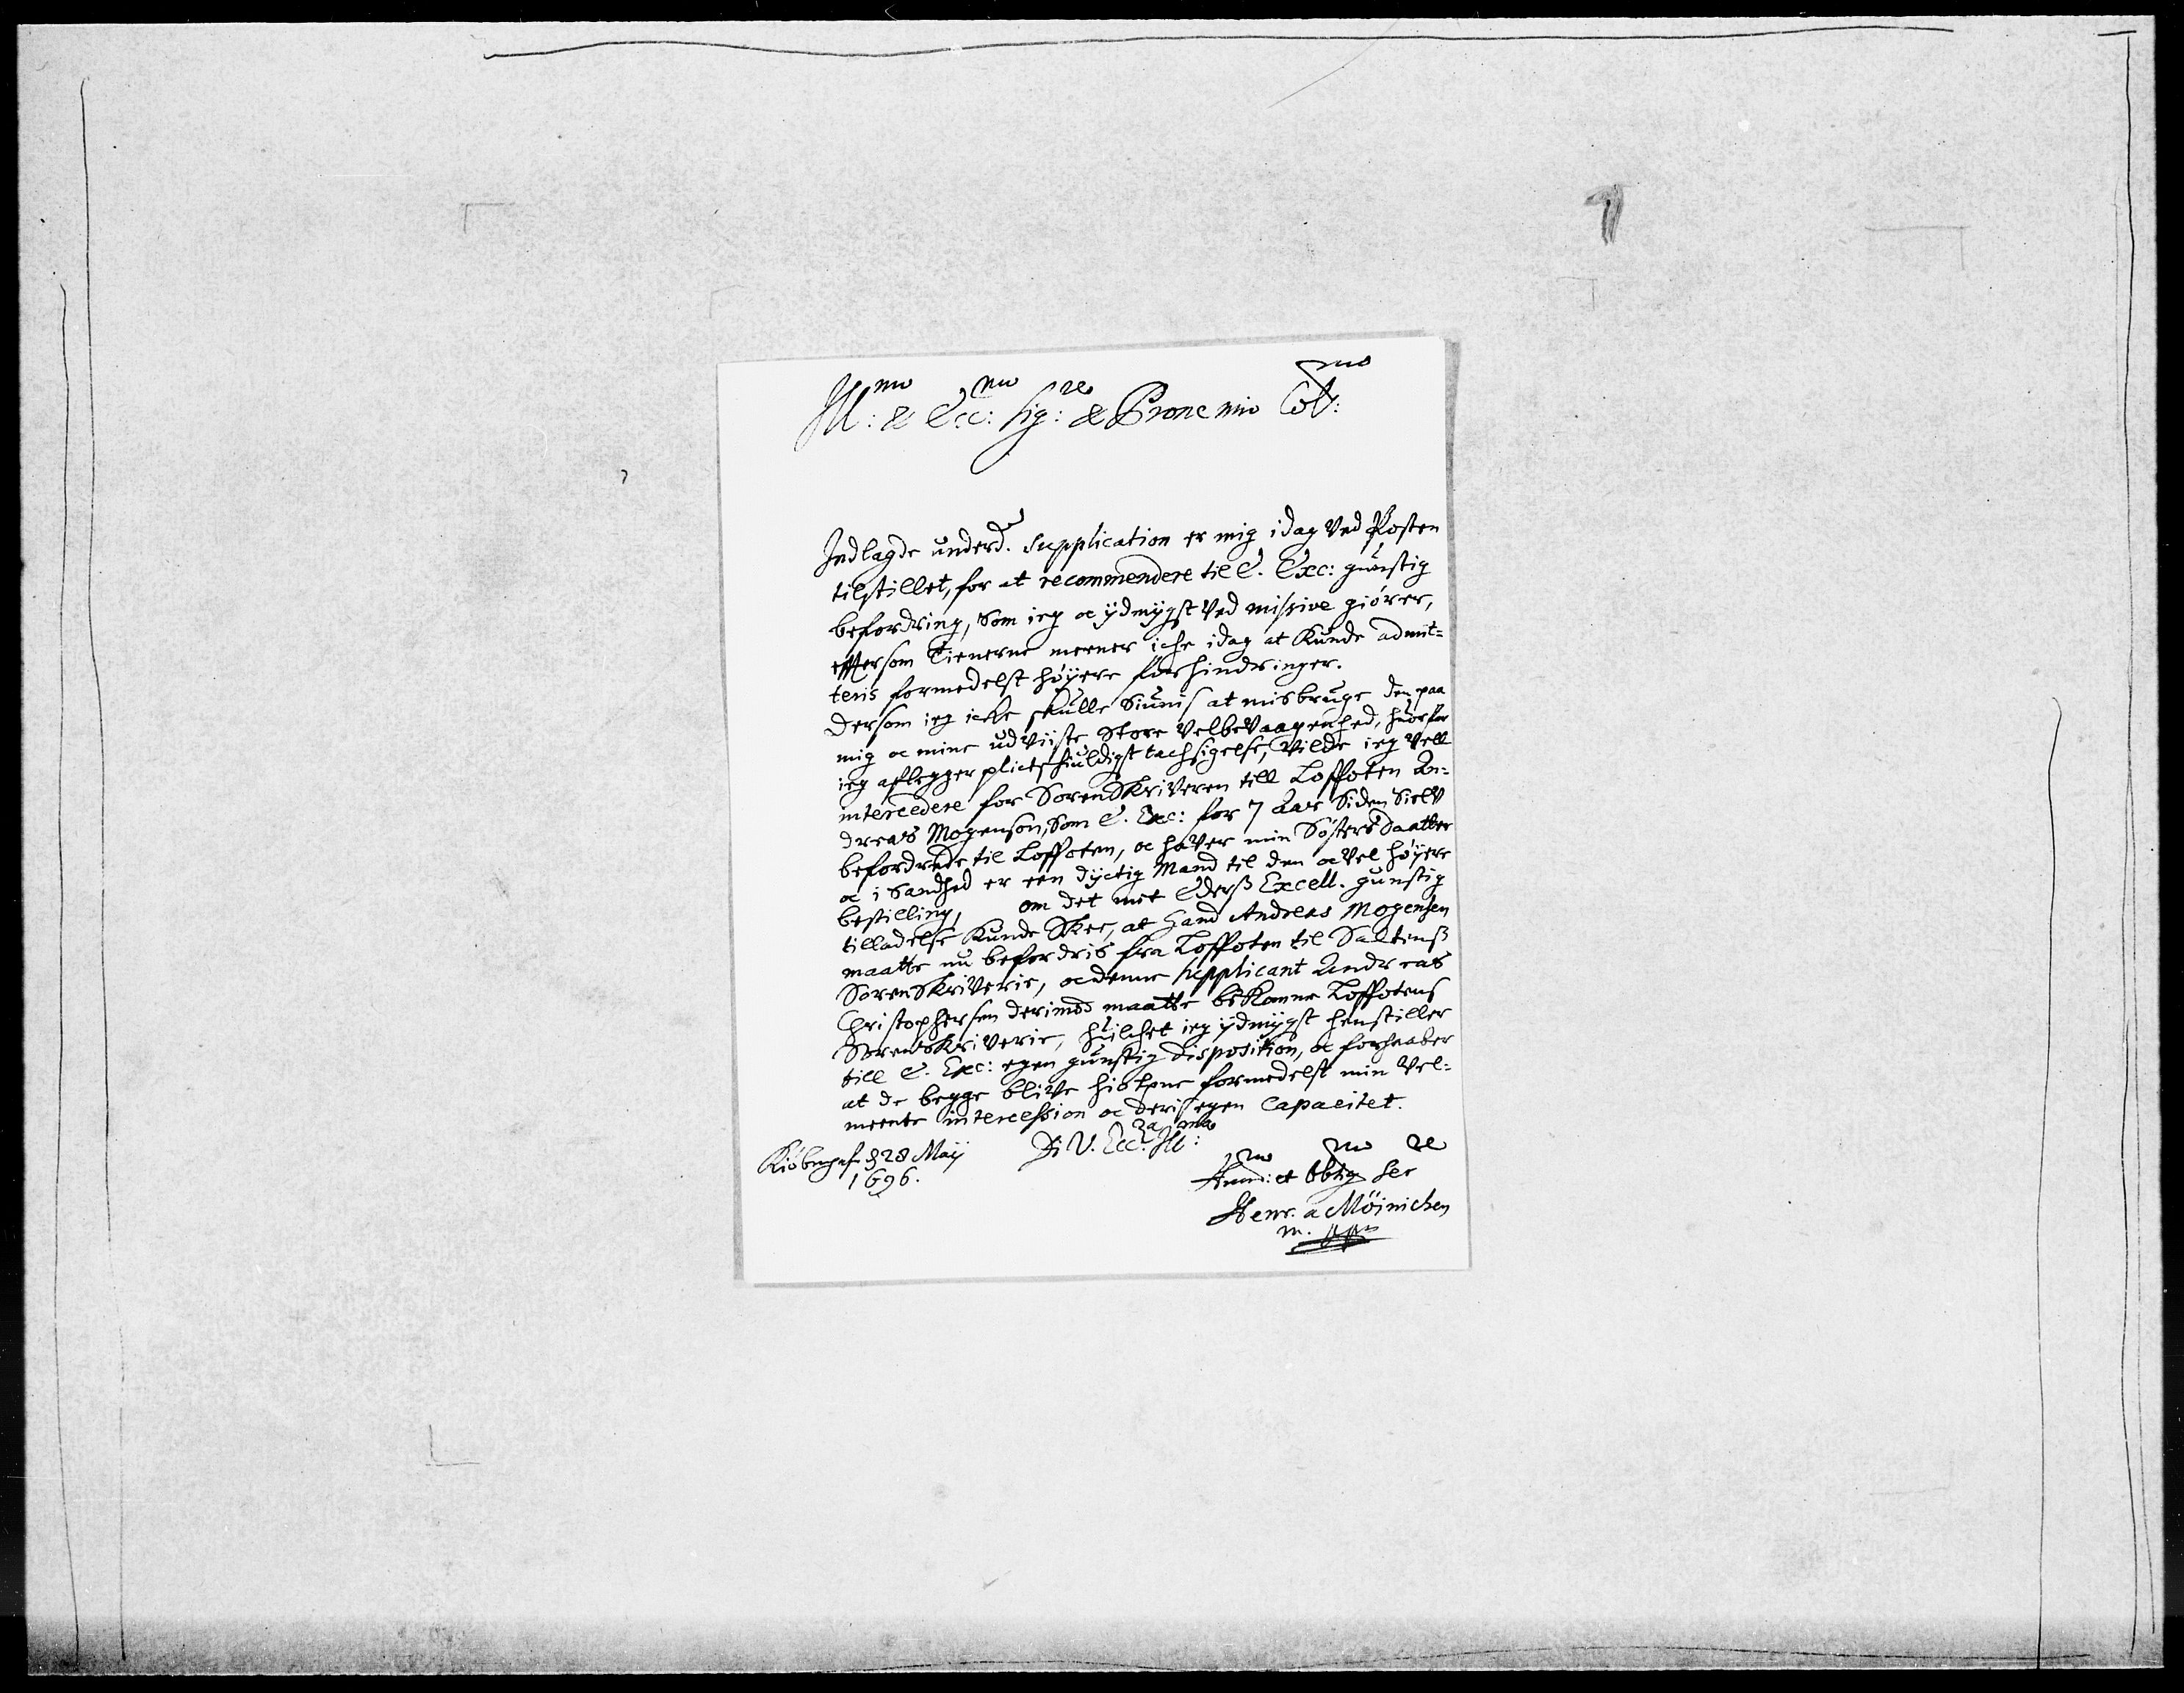 Ill:mo & Ecc:mo Sig:re & Prone mio Col:mo
Indlagde underd. Supplication er mig idag ved Posten
tilstillet, for at recommendere til E. Exc: gunstig
befordring, som ieg oc ydmygst ved missive giörer,
effter som Tienerne meener iche idag at kunde admit=
teris formedelst høyere forhindringer.
Dersom ieg icke skulle siunis at misbruge den paa
mig oc mine udviiste store velbevaagenhed, huorfor
ieg aflegger plictskiuldigst tachsigelse, vilde ieg vell
intercedere for Sorenskriveren till Loffoten An=
dreas Mogensøn, som E. Exc: for 7 Aar siden sielv
befordrede til Loffoten, oc haver min Søsters daatter
oc i sandhed er een dyctig Mand til den oc vel høyere
bestilling, om det met Eders Excell. gunstig
tilladelse kunde skee, at hand Andreas Mogensen
maatte nu befordris fra Loffoten til Saltens
Sorenskriverie, oc denne supplicant Andreas
Christophersen derimod maatte bekomme Loffotens
Sorenskriverie, huilchet ieg ydmygst henstiller
till E. Exc: egen gunstig disposition, oc forhaaber
at de begge blive hiolpne formedelst min vel=
meente intercession oc deris egen Capacitet.
Kiöbenhafn d 28 Maij
1696.
Di V. Ecc:za Ill:ma
Hum:mo et Obblig:mo Ser:re
Henr. a Möinichen
m. ppria